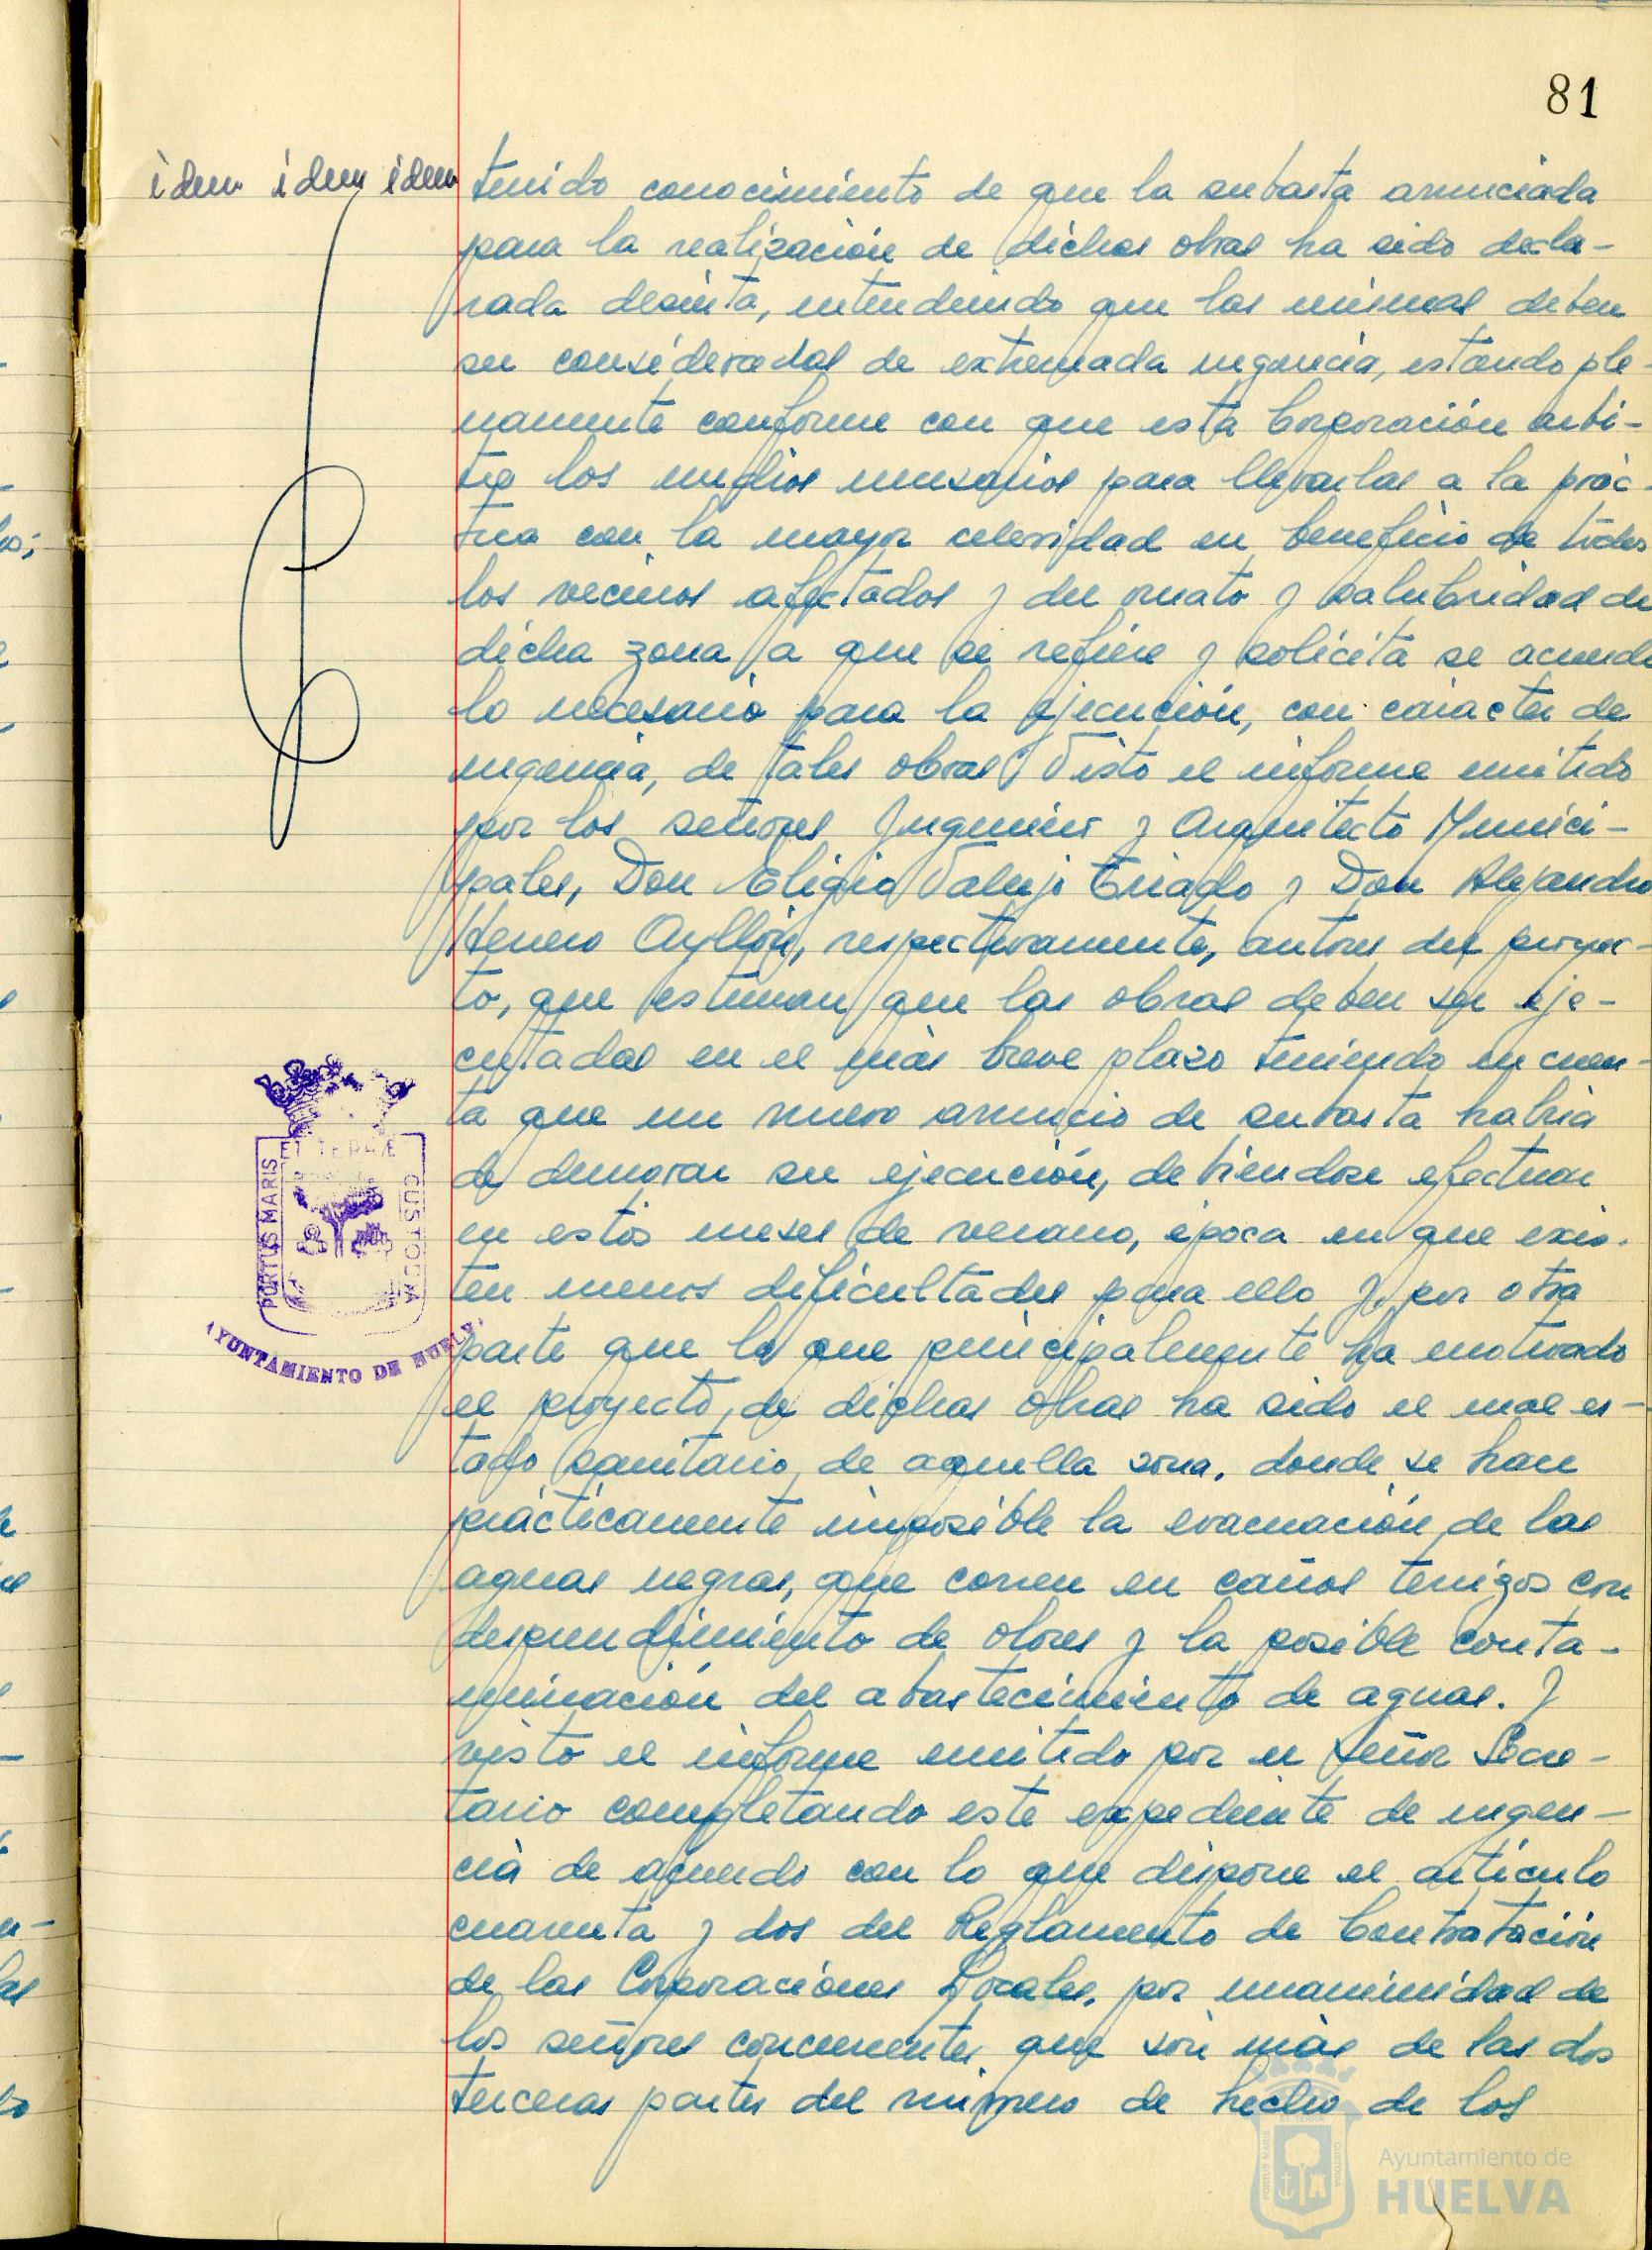 81
idem idem idem
tenido conocimiento de que la subasta anunciada
para la realización de dichas obras ha sido decla-
rada desierta, entendiendo que las mismas deben
ser consideradas de extremada urgencia, estando ple-
namente conforme con que esta Corporación arbi-
tre los medios necesarios para llevarlas a la prác-
tica con la mayor celeridad en beneficio de todos
los vecinos afectados y del ornato y salubridad de
dicha zona a que se refiere y solicita se acuerde
lo necesario para la ejecución, con caracter de
urgencia, de tales obras. Visto el informe emitido
por los señores Ingeniero y Arquitecto Munici-
pales, Don Eligio Vallejo Triado y Don Alejandro
Herrero Ayllón, respectivamente, autores del proyec-
to, que estiman que las obras deben ser eje-
cutadas en el más breve plazo teniendo en cuen-
ta que un nuevo anuncio de subasta habria
de demorar su ejecución, debiendose efectuar
en estos meses de verano, época en que exis-
ten menos dificultades para ello y, por otra
parte que lo que principalmente ha motivado
el proyecto, de dichas obras ha sido el mal es-
tado sanitario de aquella zona, donde se hace
prácticamente imposible la evacuación de las
aguas negras, que corren en caños terrizos con
desprendimiento de olores y la posible conta-
minación del abastecimiento de aguas. Y
visto el informe emitido por el señor Secre-
tario completando este expediente de urgen-
cia de acuerdo con lo que dispone el artículo
cuarenta y dos del Reglamento de Contratación
de las Corporaciones Locales, por unanimidad de
los señores concurrentes, que son más de las dos
terceras partes del número de hecho de los
PORTUS MARIS
ET TERRAE
CUSTODIA
AYUNTAMIENTO DE HUELVA
Ayuntamiento de
HUELVA